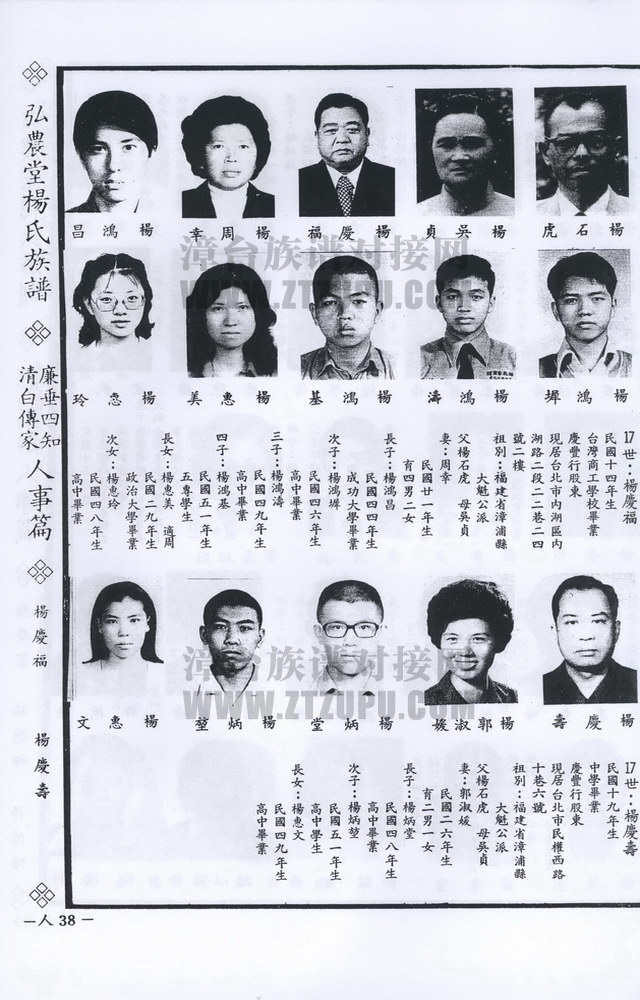 弘農堂楊氏族譜
廉垂四知
清白傳家
人事篇
楊慶福
楊慶壽
楊石虎
楊吳貞
楊慶福
楊周幸
楊鴻昌
楊鴻墀
楊鴻濤
楊鴻基
楊惠美
楊惠玲
17世：楊慶福
民國十四年生
台灣商工學校畢業
慶豐行股東
現居台北市內湖區內
湖路二段二二巷二四
號二樓
祖別：福建省漳浦縣
大魁公派
父楊石虎　母吳貞
妻：周幸
民國廿一年生
育四男二女
長子：楊鴻昌
民國四四年生
成功大學畢業
次子：楊鴻墀
民國四六年生
高中畢業
三子：楊鴻濤
民國四九年生
高中畢業
四子：楊鴻基
民國五一年生
五專學生
長女：楊惠美　適周
民國二九年生
政治大學畢業
次女：楊惠玲
民國四八年生
高中畢業
楊慶壽
楊郭淑媛
楊炳堂
楊炳堃
楊惠文
17世：楊慶壽
民國十九年生
中學畢業
慶豐行股東
現居台北市民權西路
十巷六號
祖別：福建省漳浦縣
大魁公派
父楊石虎　母吳貞
妻：郭淑媛
民國二六年生
育二男一女
長子：楊炳堂
民國四八年生
高中畢業
次子：楊炳堃
民國五一年生
高中學生
長女：楊惠文
民國四九年生
高中畢業
—人 38 —
漳台族谱对接网
WWW.ZTZUPU.COM
漳台族谱对接网
WWW.ZTZUPU.COM